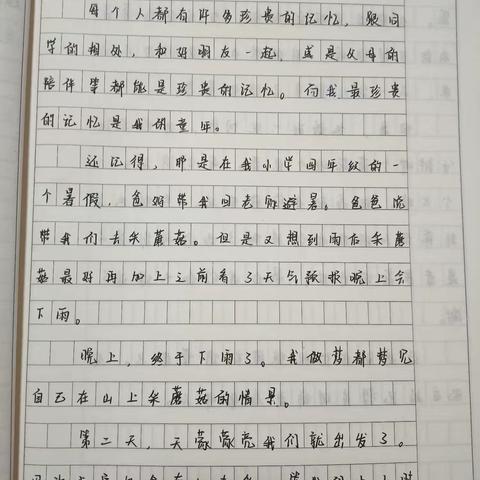 每个人都有许多珍贵的记忆，跟同
学的相处，和好朋友一起，或是父母的
陪伴等都能是珍贵的记忆。而我最珍贵
的记忆是我胡童年。
还记得，那是在我小学四年级的一
个暑假，爸妈带我回老家避暑。爸爸说
带我们去采蘑菇。但是又想到雨后采蘑
菇最好再加上之前看了天气预报晚上会
下雨。
晚上，终于下雨了。我做梦都梦见
自己在山上采蘑菇的情景。
第二天，天蒙蒙亮我们就出发了。